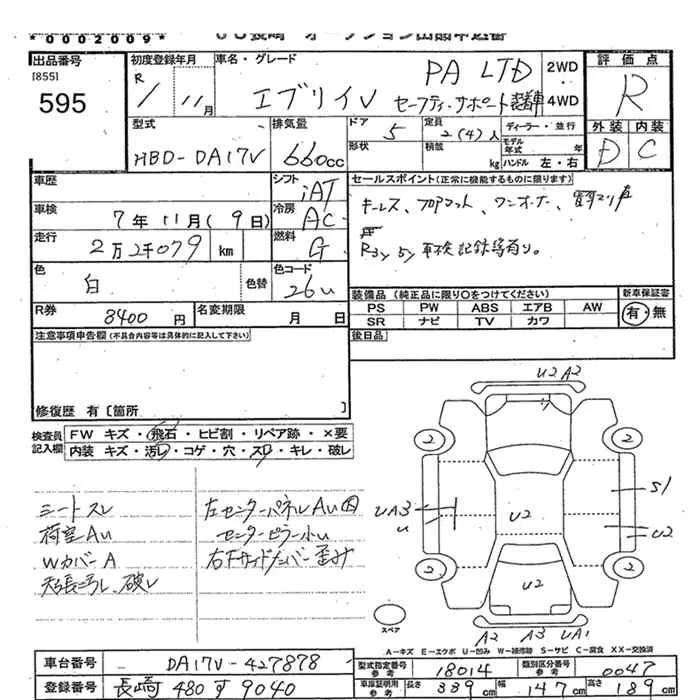 *0002009*
出品番号
[855]
595
初度登録年月
R
1/11月
車名・グレード
PA LTD
エブリイV セーフティサポート装着車
2WD
4WD
評価点
R
型式
HBD-DA17V
排気量
660cc
ドア
5
定員
2(4)人
ディーラー・並行
形状
積載
kg
モデル年式
年
ハンドル 左・右
外装 内装
D C
車歴
シフト
iAT
車検
7年11月(9日)
冷房
AC
走行
2万2千079 km
燃料
G
セールスポイント(正常に機能するものに限ります)
キーレス、プロアロット、ワンオーナー、
R3y 5y 車検記録簿有り。
色
白
色替
色コード
26u
R券
8400円
名変期限
月 日
装備品 (純正品に限り〇をつけてください)
PS PW ABS エアB AW
SR ナビ TV カワ
新車保証書
有・無
注意事項申告欄(不具合内容等は具体的に記入して下さい)
後日品
修復歴 有[箇所 ]
検査員記入欄
FW キズ・飛石・ヒビ割・リペア跡・×要
内装 キズ・汚レ・コゲ・穴・スレ・キレ・破レ
シートスレ
荷室AU
WカバーA
天張汚レ、破レ
左センターパネルAU
センターピラー小u
右下サイドメンバー歪み
U2 A2
2 2
UA3
u
S1
U2
U2
2 2
U2
A2 A3 UA1
スペア
A-キズ E-エクボ U-凹み W-補修跡 S-サビ C-腐食 XX-交換済
車台番号
DA17V-427878
型式指定番号 参考
18014
類別区分番号 参考
0047
登録番号
長崎 480 す 9040
車庫証明用 参考
長さ 339cm
幅 147cm
高さ 189cm